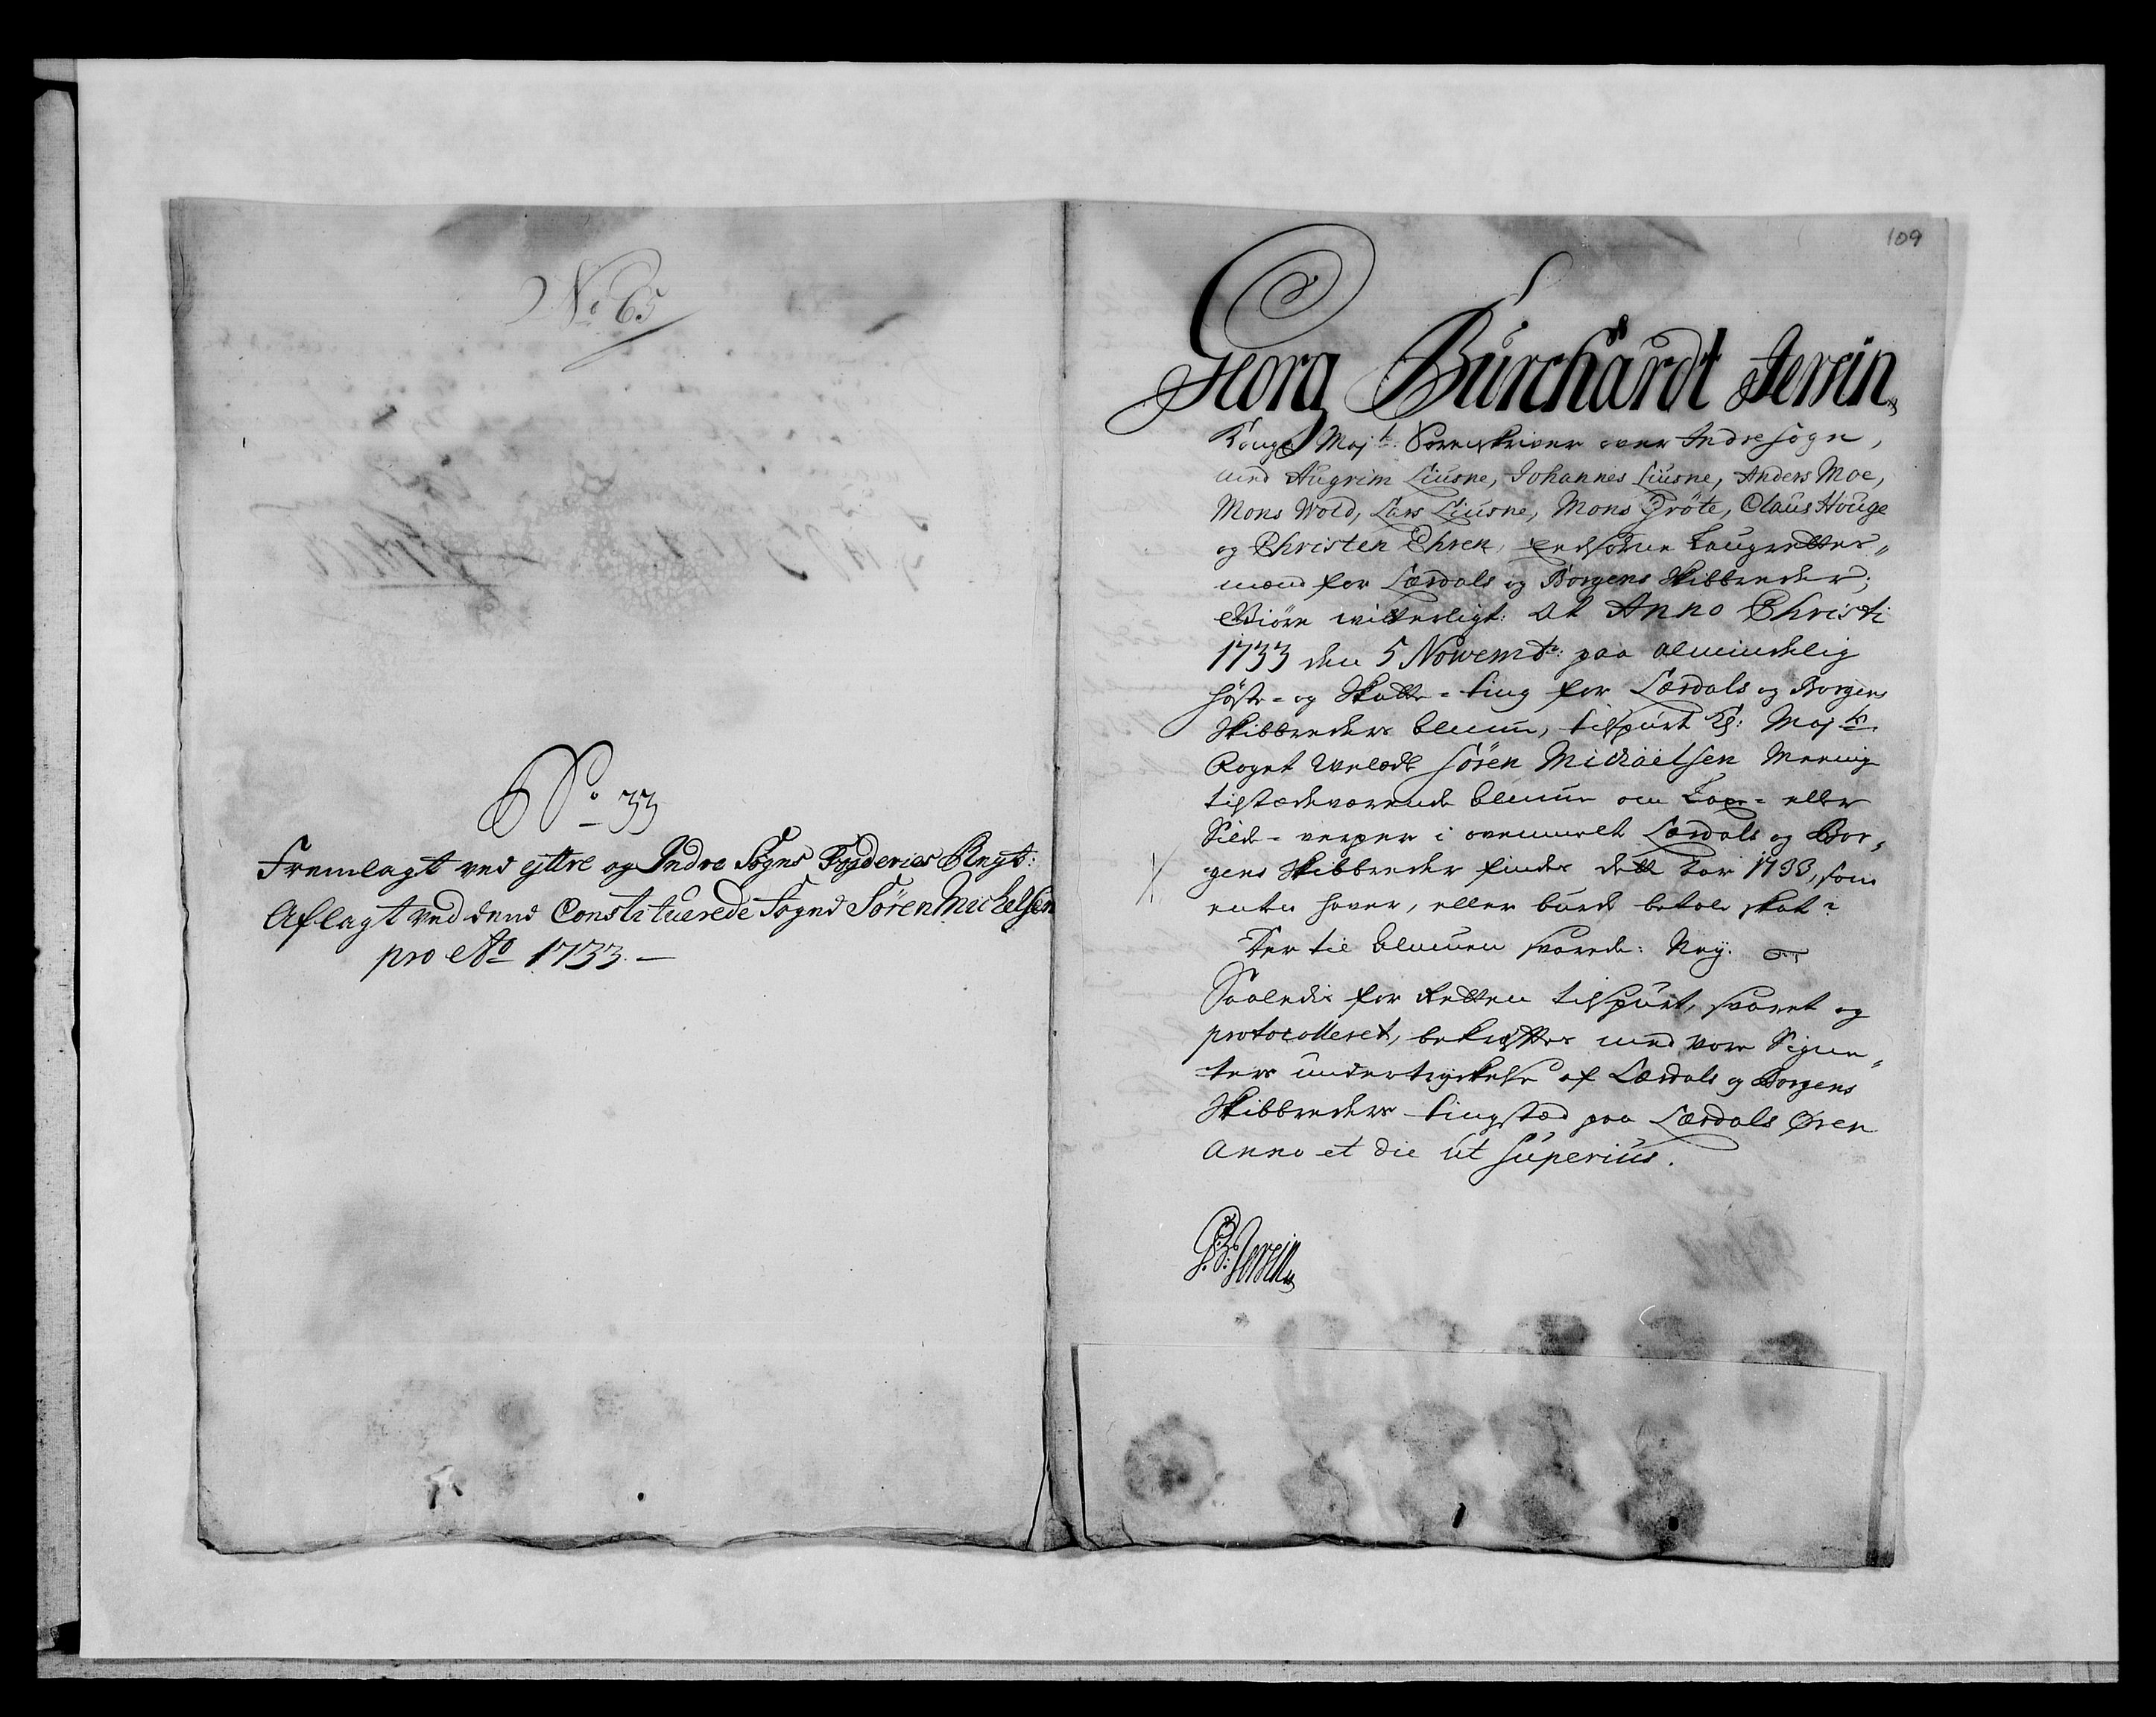 No 65
No 33
Fremlagt ved yttre og Indre Sogns Fogderies Regt:
Aflagt ved dend Constituerede Foged Sören Michelsen
pro Ao 1733.
109
Georg Burchardt Jersin
Kongl Majts: Sorenskriver over Indresogn,
med Augrim Liusne, Johannes Liusne, Anders Moe,
Mons Wold, Lars Liusne, Mons Gröte, Claus Houge
og Christen Ehren, Eedsorne Laugrettes„
mænd for Lærdals og Borgens Skibbreder;
Giöre witterligt: At Anno Christi
1733 den 5 Novembr: paa almindelig
Höste- og Skatte-ting for Lærdals og Borgens
Skibbreders Almue, tilspurt Kg: Majts.
Foget Velædle Sören Michaelsen Meenig
tilstædeværende Almue om Laxe- eller
Silde-verper i ovenmelt Lærdals og Bor„
gens Skibbreder findes dette Aar 1733, som
enten haver, eller burde betale skat?
Der til Almuen svarede: Ney.
Saaledis for Retten tilspurt, svaret og
protocolleret, bekræfter med vore Signe„
ters undertryckelse af Lærdals og Borgens
Skibbreders tingstæd paa Lærdals Øren
Anno et die ut superius.
G:B: Jersin